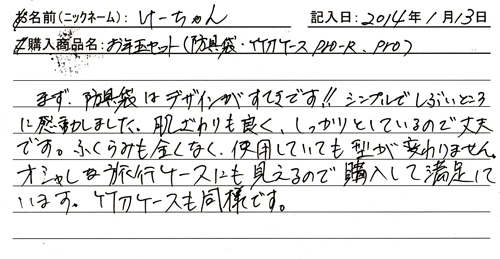 お名前(ニックネーム): けーちゃん 記入日: 2014年1月13日
ご購入商品名: お年玉セット(防具袋・竹刀ケースpro-R、pro)
まず、防具袋はデザインがすてきです!! シンプルでしぶいところ
に感動しました。肌ざわりも良く、しっかりとしているので丈夫
です。ふくらみも全くなく、使用していても型が変わりません。
オシャレな旅行ケースにも見えるので購入して満足して
います。竹刀ケースも同様です。